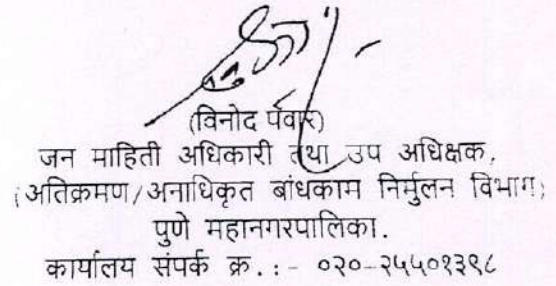 (विनोद पवार)
जन माहिती अधिकारी तथा उप अधिक्षक,
(अतिक्रमण/अनाधिकृत बांधकाम निर्मुलन विभाग)
पुणे महानगरपालिका.
कार्यालय संपर्क क्र.:- ०२०-२५५०१३९८